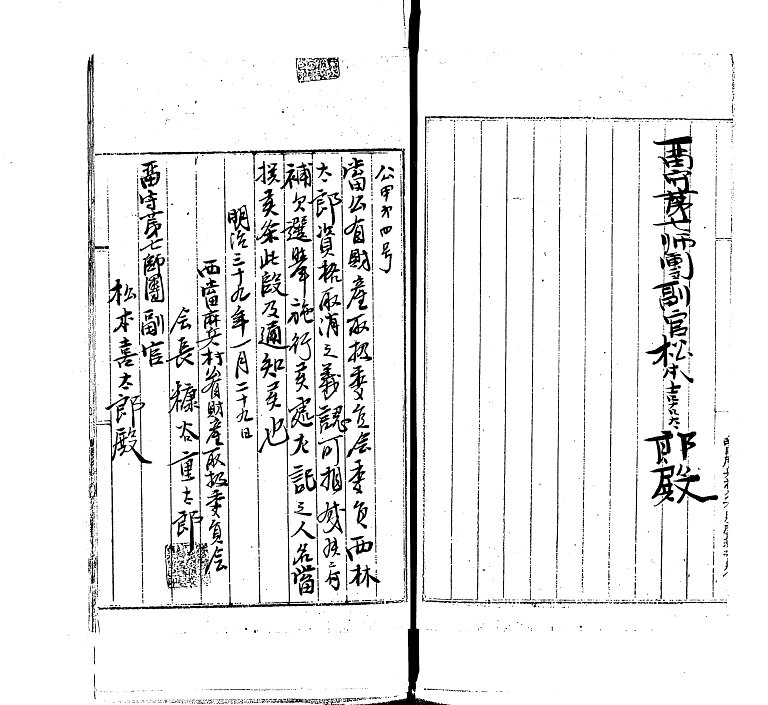 留守第七師團副官松本喜太郎殿
公甲第四号
當公有財産取扱委員会委員西林
太郎資格取消之義認可相成候ニ付
補欠選挙施行候處左記之人名當
撰候条此段及通知候也
明治三十九年一月二十九日
西當麻兵村公有財産取扱委員会
会長 糠谷重太郎
留守第七師團副官
松本喜太郎殿